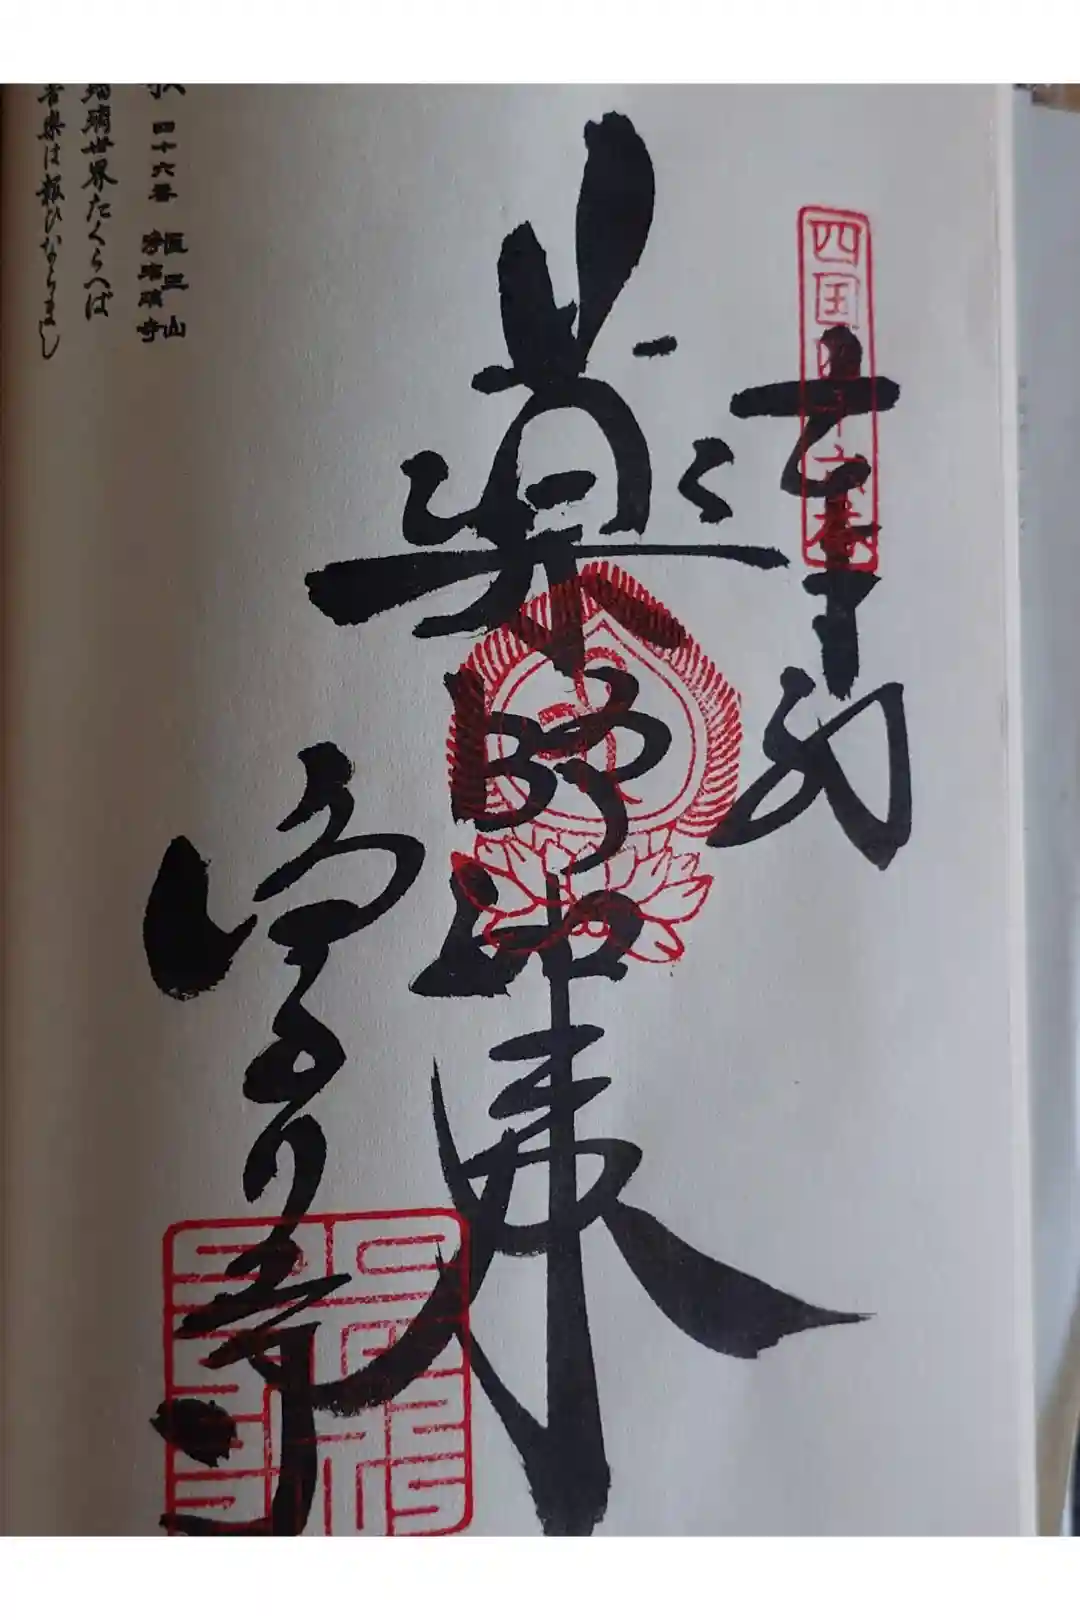 四国四十六番
奉納
薬師如来
浄るり寺
四十六番 医王山
浄瑠璃寺
瑠璃世界たくらへば
苦楽は報ひならまし